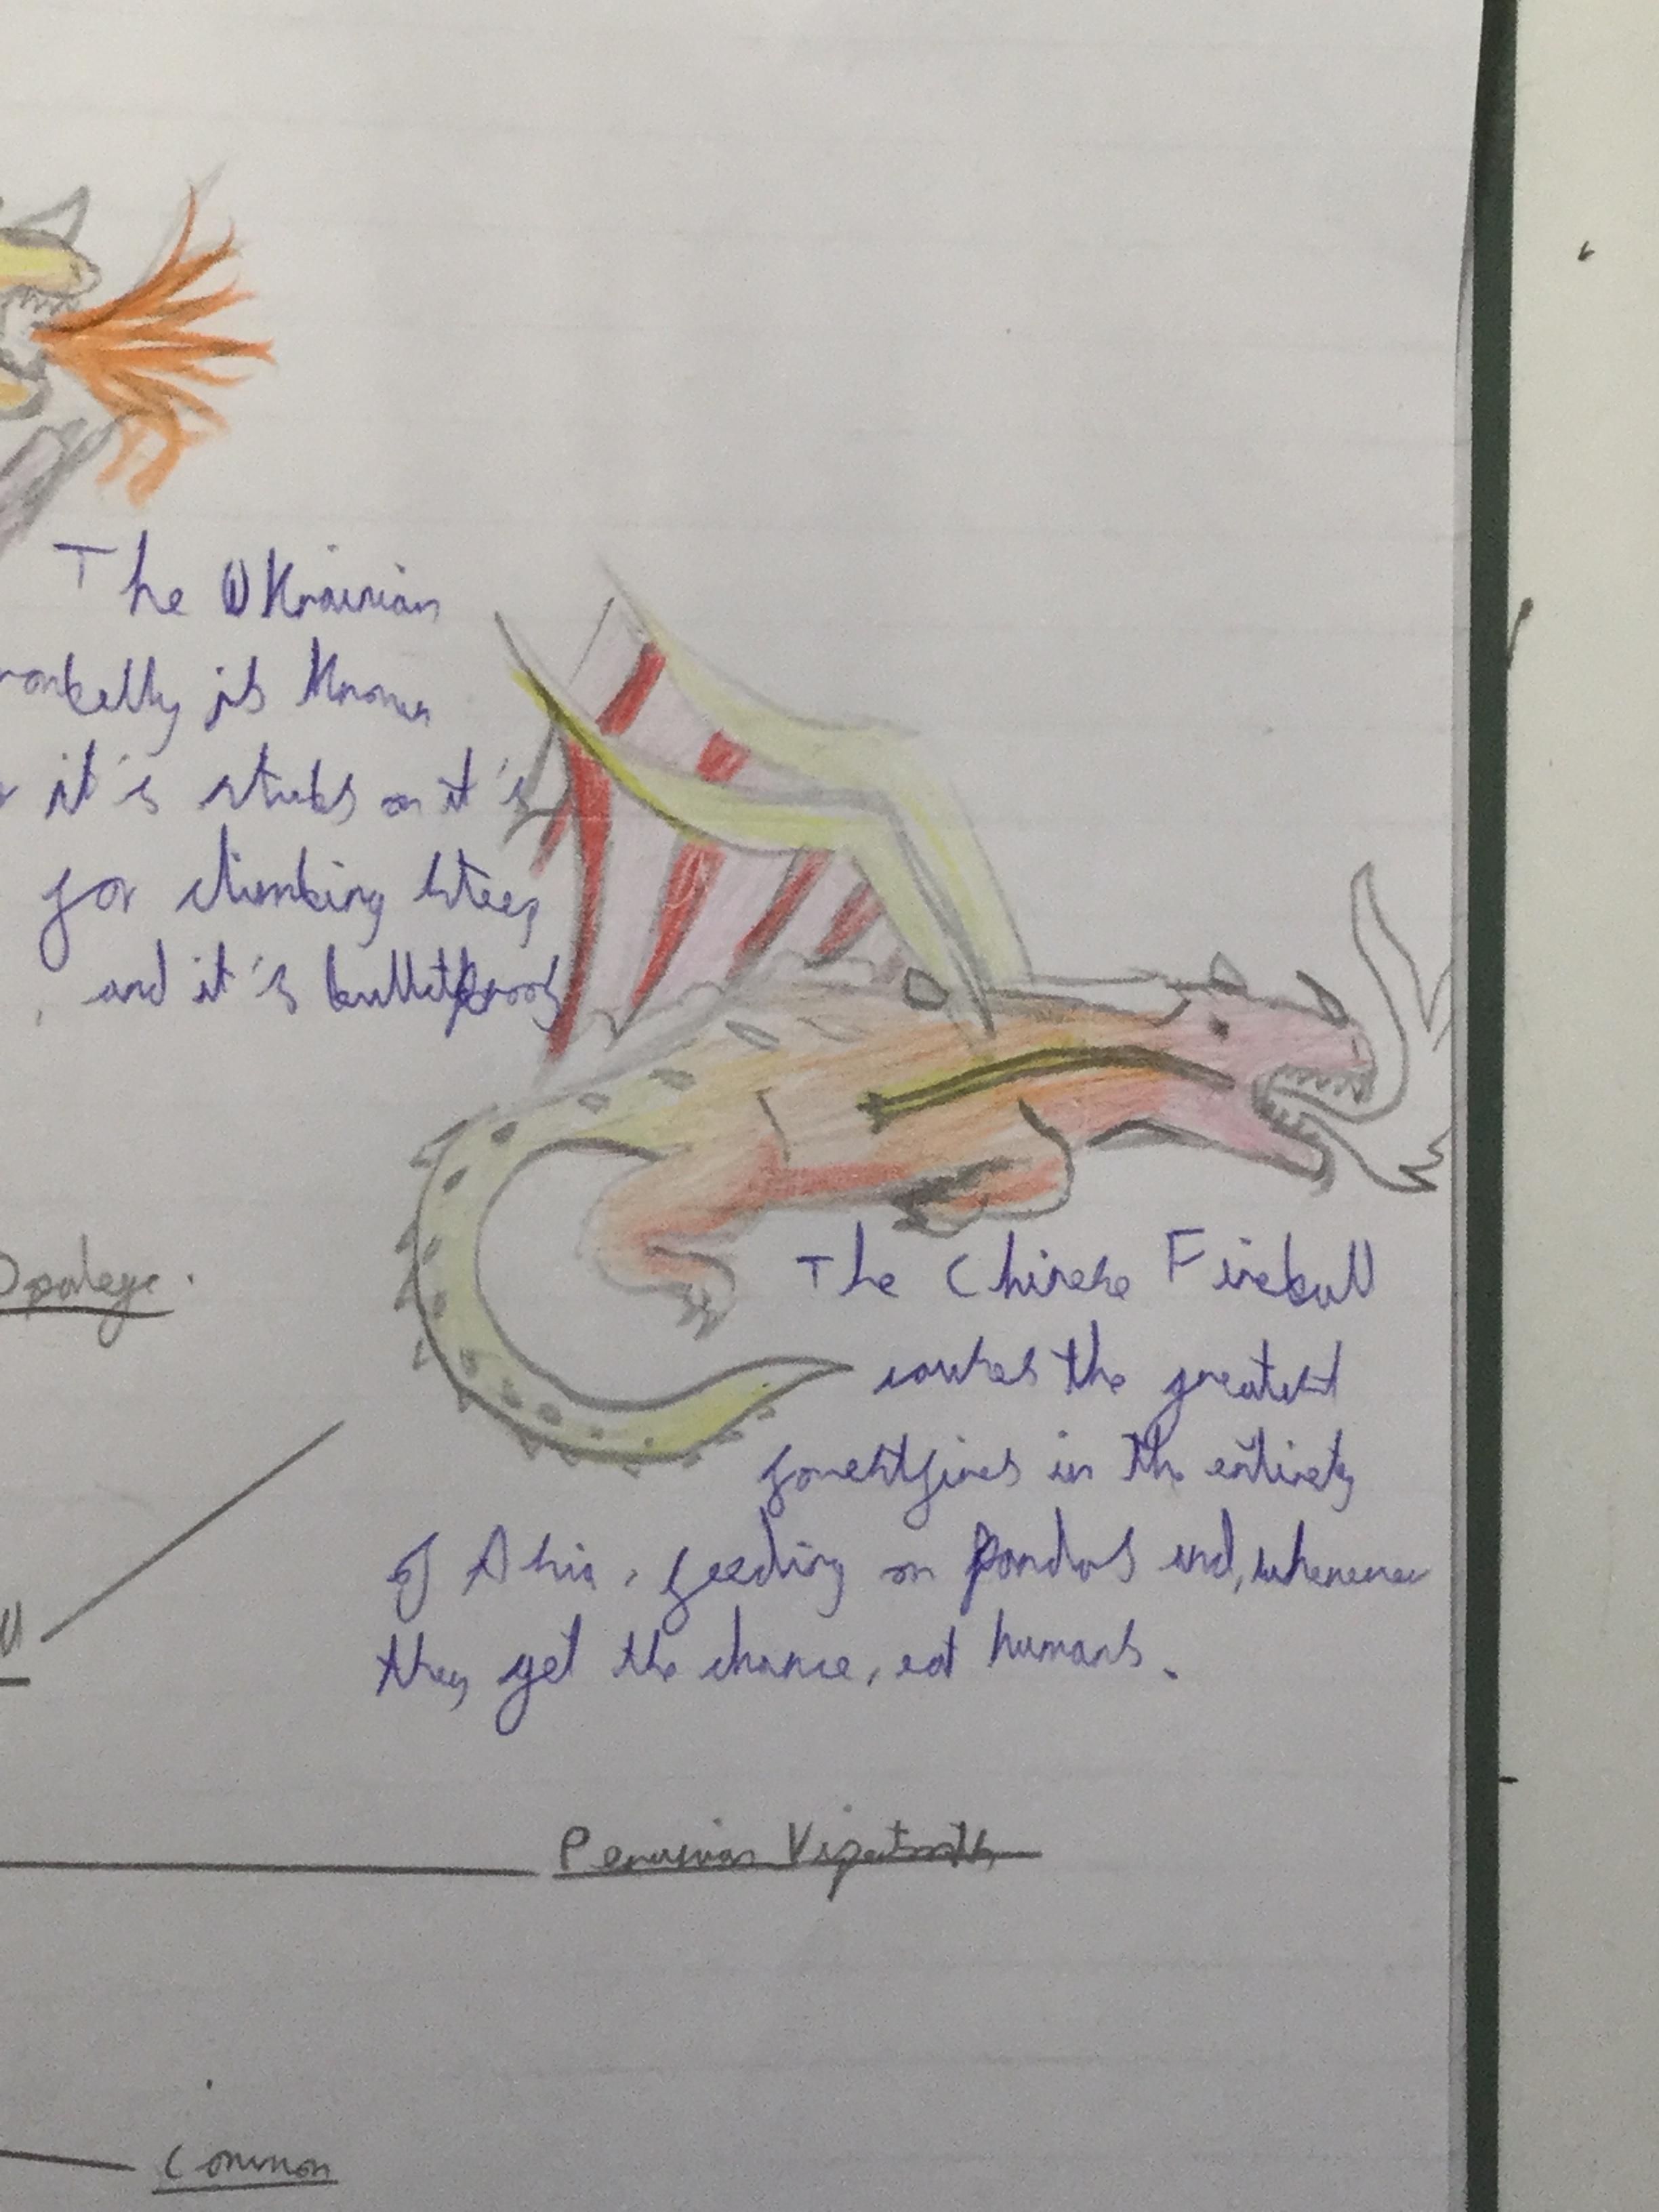 The Ukrainian
ronbelly is known
it's stubs on it's
for climbing steep
, and it's bulletproof
Opaleye.
The Chinese Fireball
causes the greatest
forestfires in the entirety
of Asia, feeding on Pandas and, whenever
they get the chance, eat humans.
Peruvian Vipertooth
Common